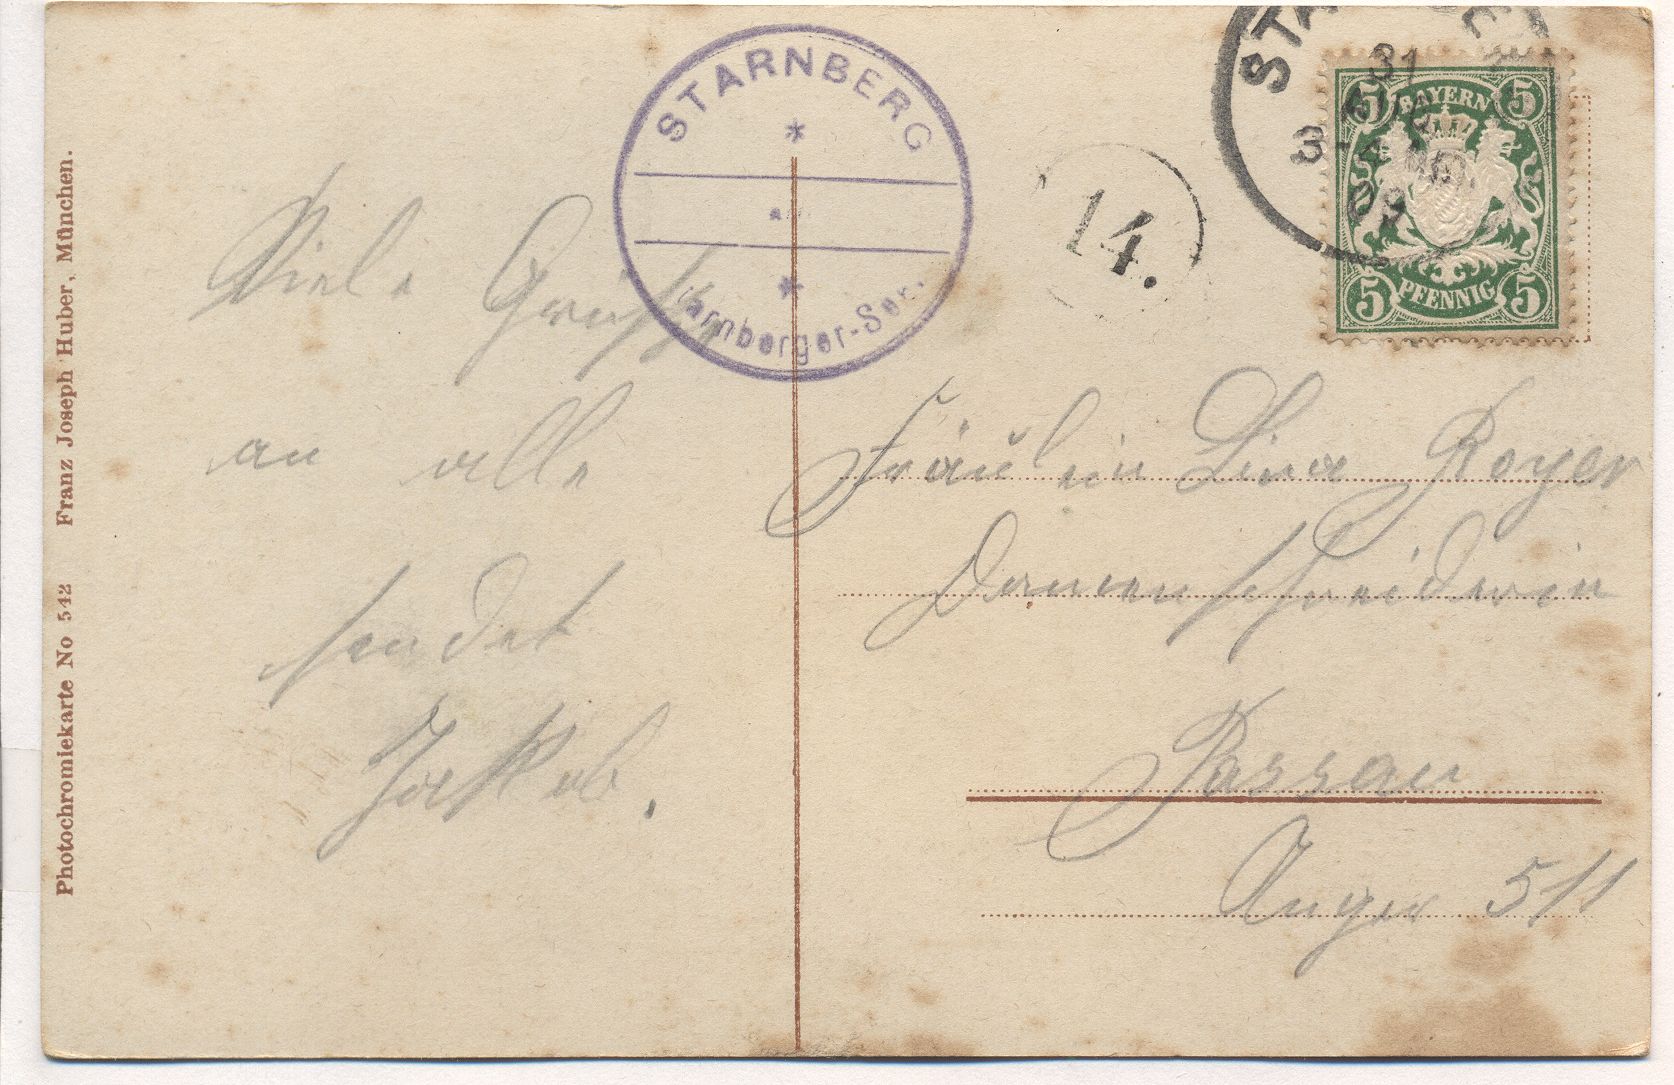 Photochromiekarte No 542 Franz Joseph Huber, München.
STARNBERG
am
Starnberger-See.
14.
31
3-4
09
BAYERN
5 5
5 PFENNIG 5
Viele Grüße
an alle
sendet
Jakob.
Fräulein Lina Royer
Damenschneiderin
Passau
Anger 511